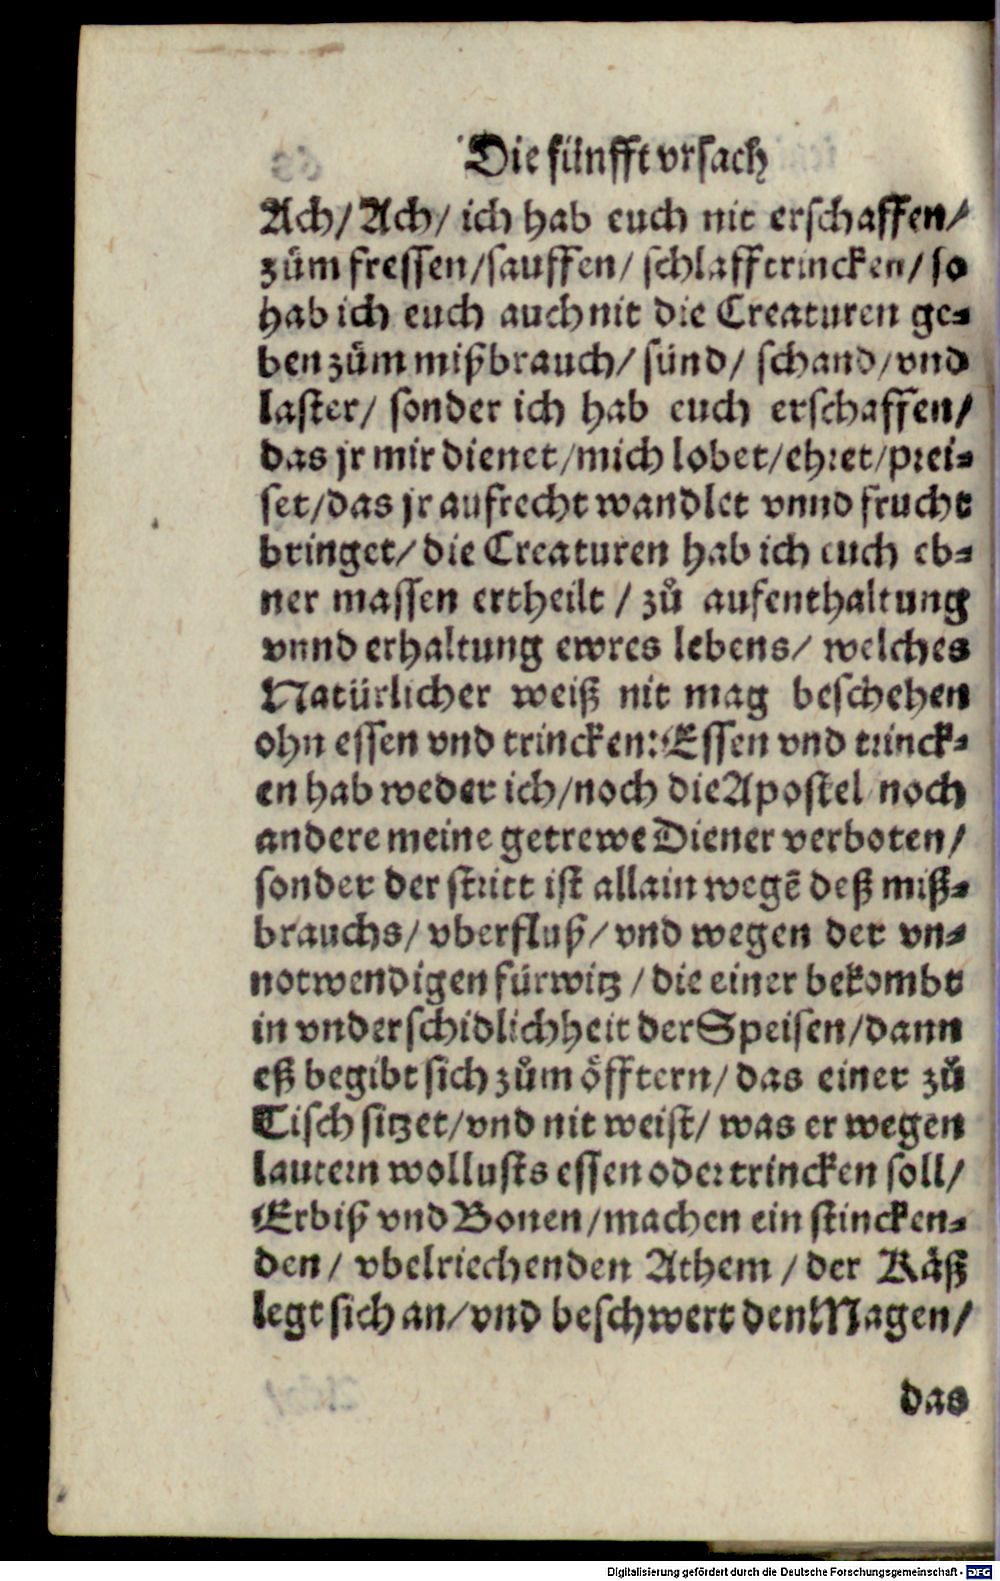 Die fünfft vrsach
Ach/ Ach/ ich hab euch nit erschaffen/
zům fressen/sauffen/ schlafftrincken/ so
hab ich euch auch nit die Creaturen ge-
ben zům mißbrauch/ sünd/ schand/ vnd
laster/ sonder ich hab euch erschaffen/
das jr mir dienet/mich lobet/ehret/prei-
set/das jr aufrecht wandlet vnnd frucht
bringet/ die Creaturen hab ich euch eb-
ner massen ertheilt / zů aufenthaltung
vnnd erhaltung ewres lebens/ welches
Natürlicher weiß nit mag beschehen
ohn essen vnd trincken: Essen vnd trinck-
en hab weder ich/noch die Apostel noch
andere meine getrewe Diener verboten/
sonder der stritt ist allain wegẽ deß miß-
brauchs/ vberfluß/ vnd wegen der vn-
notwendigen fürwitz / die einer bekombt
in vnderschidlichheit der Speisen/dann
eß begibt sich zům öfftern/ das einer zů
Tisch sitzet/vnd nit weist/ was er wegen
lautern wollusts essen oder trincken soll/
Erbiß vnd Bonen/machen ein stincken-
den/ vbelriechenden Athem / der Käß
legt sich an/vnd beschwert den Magen/
das
Digitalisierung gefördert durch die Deutsche Forschungsgemeinschaft - DFG